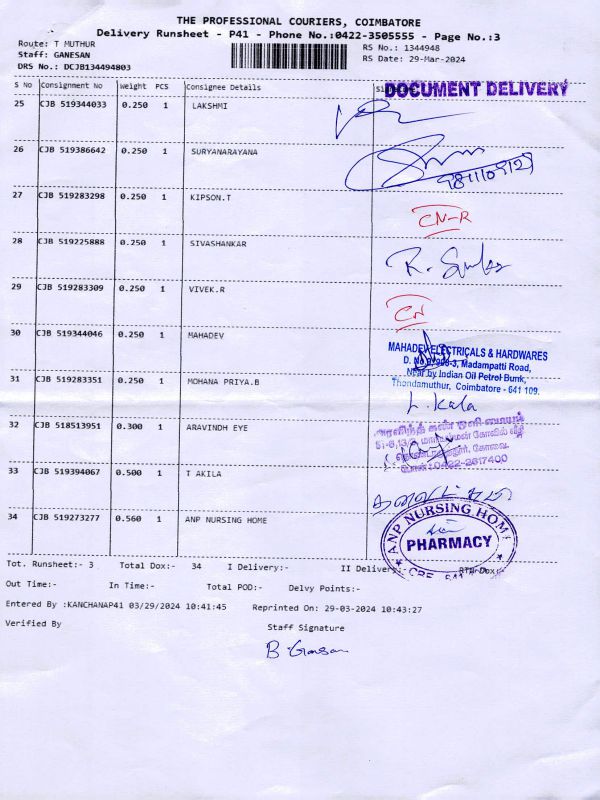 THE PROFESSIONAL COURIERS, COIMBATORE
Delivery Runsheet - P41 - Phone No.:0422-3505555 - Page No.:3
Route: T MUTHUR
RS No.: 1344948
Staff: GANESAN
RS Date: 29-Mar-2024
DRS No.: DCJB134494803
S No Consignment No Weight PCS Consignee Details
DOCUMENT DELIVERY
25 CJB 519344033 0.250 1 LAKSHMI
26 CJB 519386642 0.250 1 SURYANARAYANA
27 CJB 519283298 0.250 1 KIPSON.T CN-R
28 CJB 519225888 0.250 1 SIVASHANKAR
29 CJB 519283309 0.250 1 VIVEK.R CN
30 CJB 519344046 0.250 1 MAHADEV
MAHADEV ELECTRICALS & HARDWARES
Madampatti Road,
Near by Indian Oil Petrol Bunk,
Thondamuthur, Coimbatore - 641 109.
31 CJB 519283351 0.250 1 MOHANA PRIYA.B L. Kala
32 CJB 518513951 0.300 1 ARAVINDH EYE
0422-2617400
33 CJB 519394067 0.500 1 T AKILA
34 CJB 519273277 0.560 1 ANP NURSING HOME
ANP NURSING HOME
PHARMACY
Tot. Runsheet:- 3 Total Dox:- 34 I Delivery:- II Delivery:- RTN Dox:-
Out Time:- In Time:- Total POD:- Delvy Points:-
Entered By :KANCHANAP41 03/29/2024 10:41:45 Reprinted On: 29-03-2024 10:43:27
Verified By Staff Signature